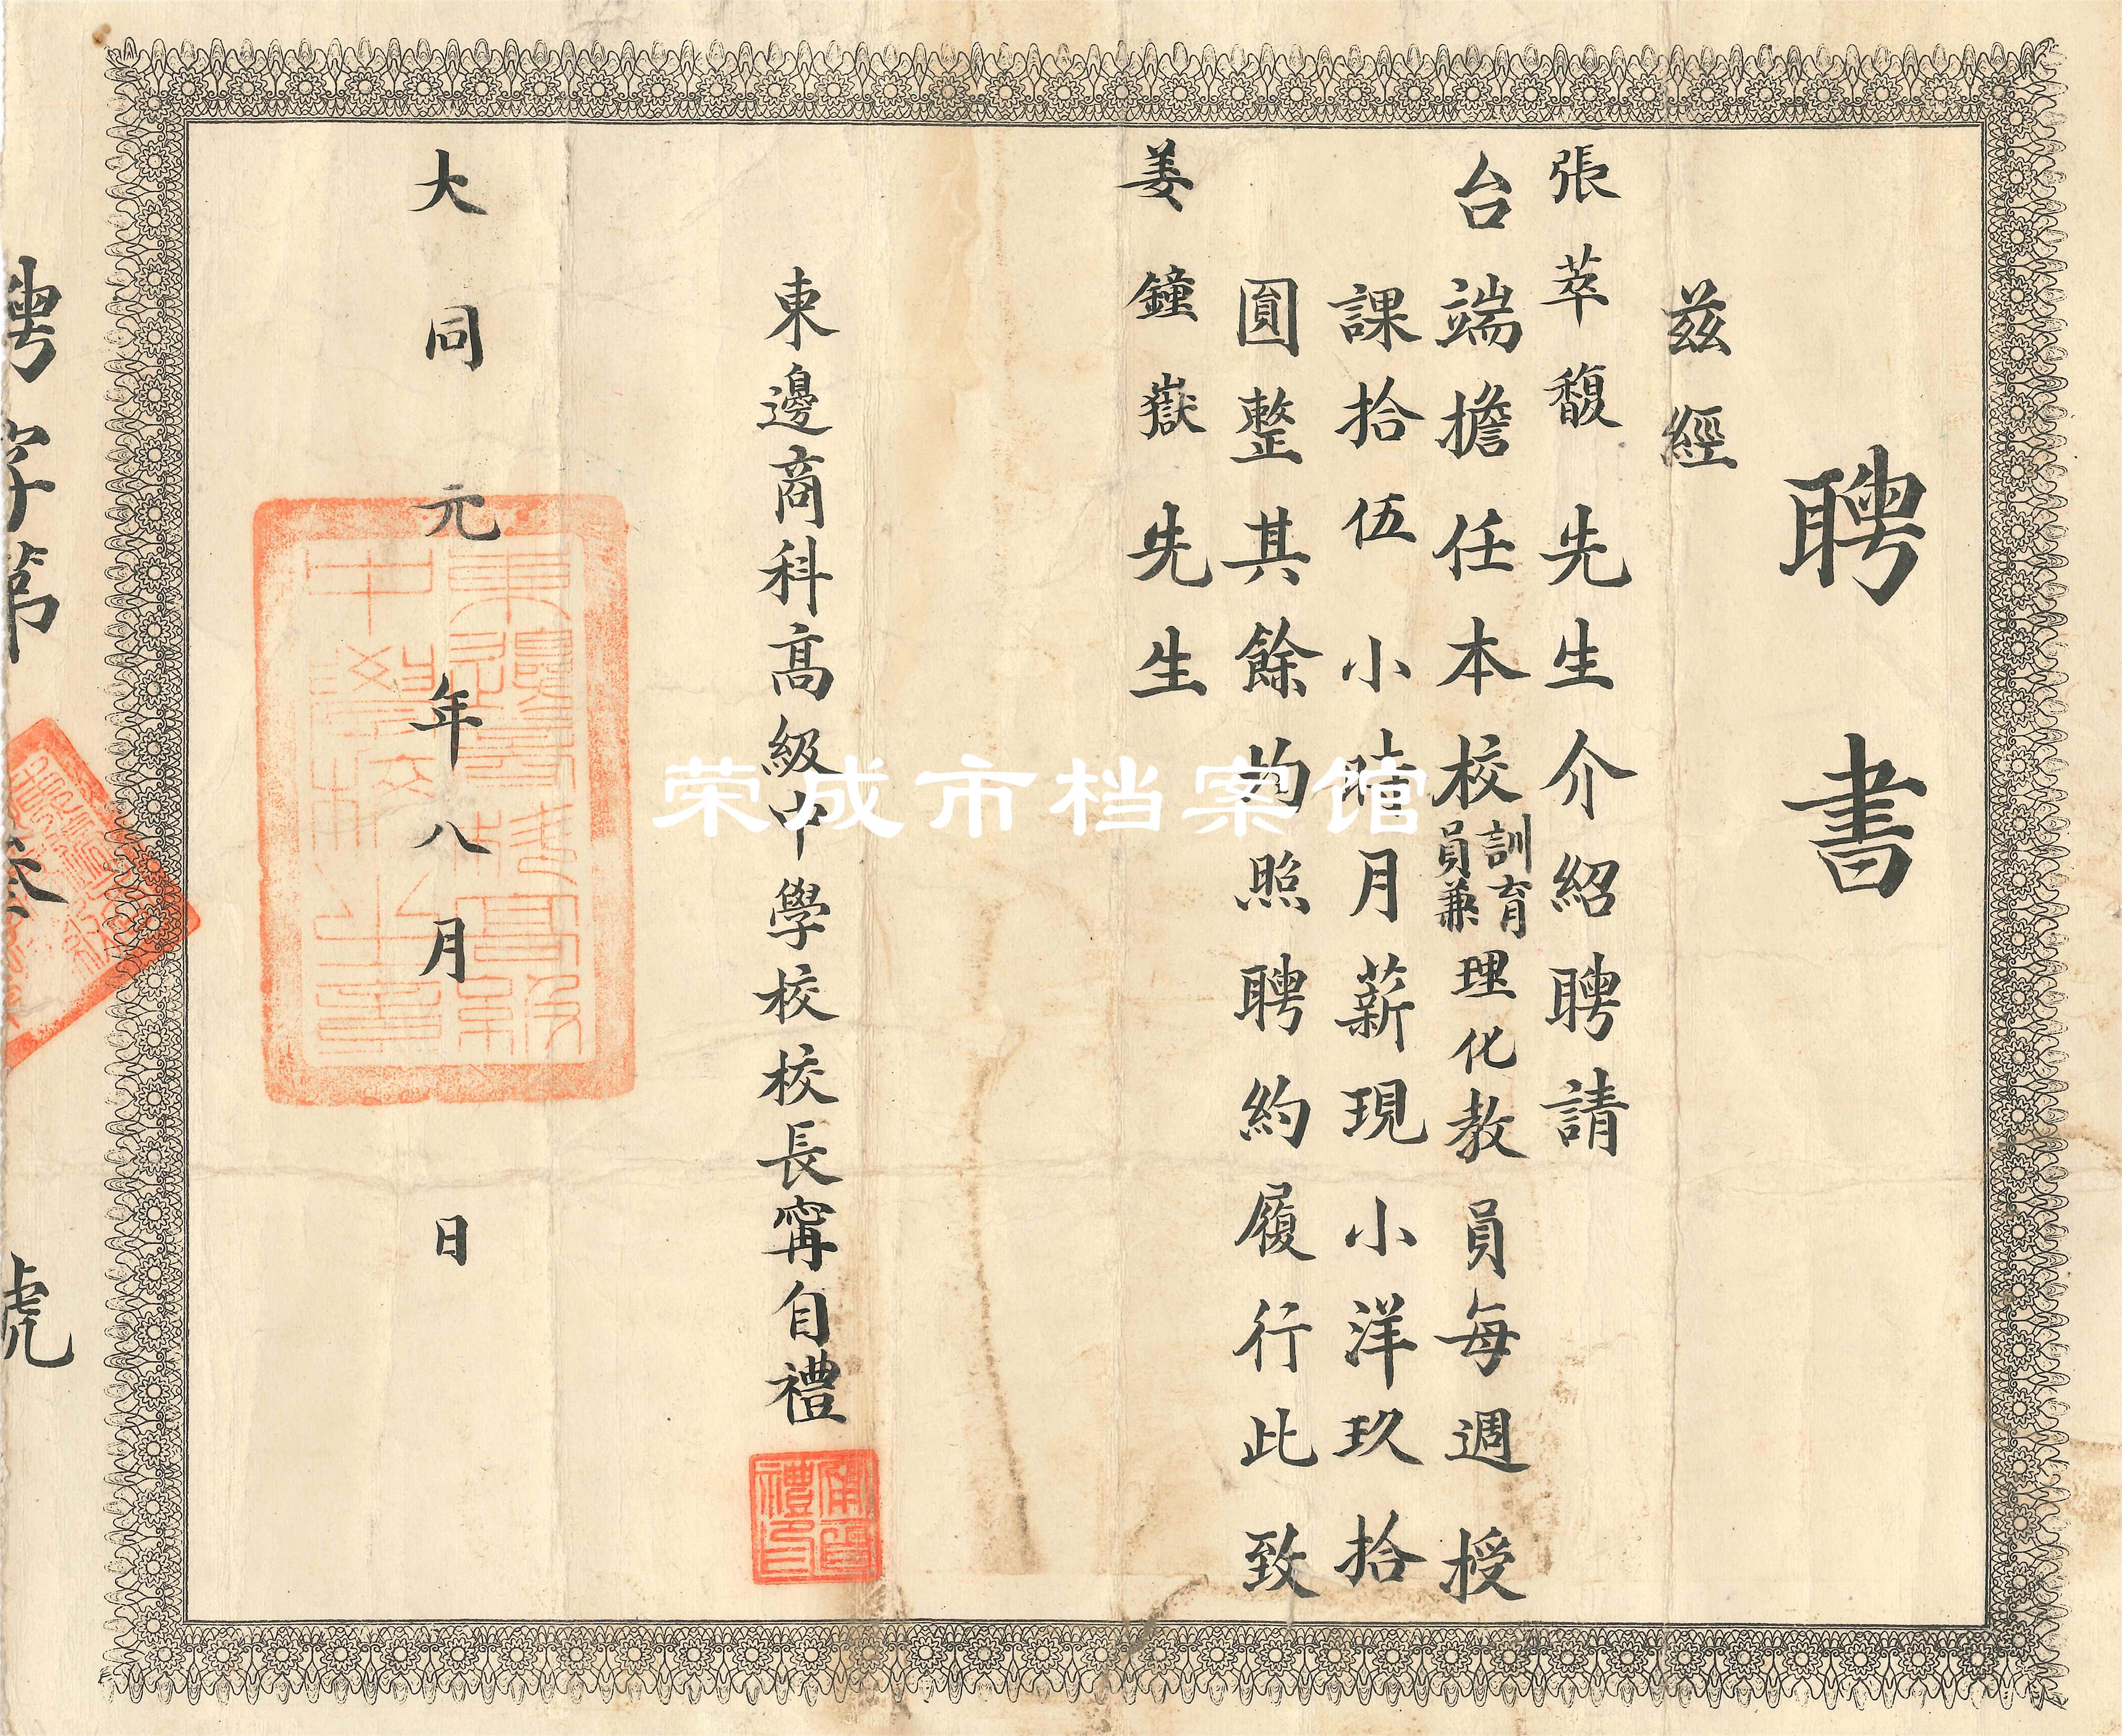 聘書
茲經
張萃馥先生介紹聘請
台端擔任本校訓育員兼理化教員每週授
課拾伍小時月薪現小洋玖拾
圓整其餘均照聘約履行此致
姜鐘嶽先生
東邊商科高級中學校校長甯自禮
甯自禮印
大同元年八月 日
東邊商科高級中學校之章
聘字第叁號
荣成市档案馆